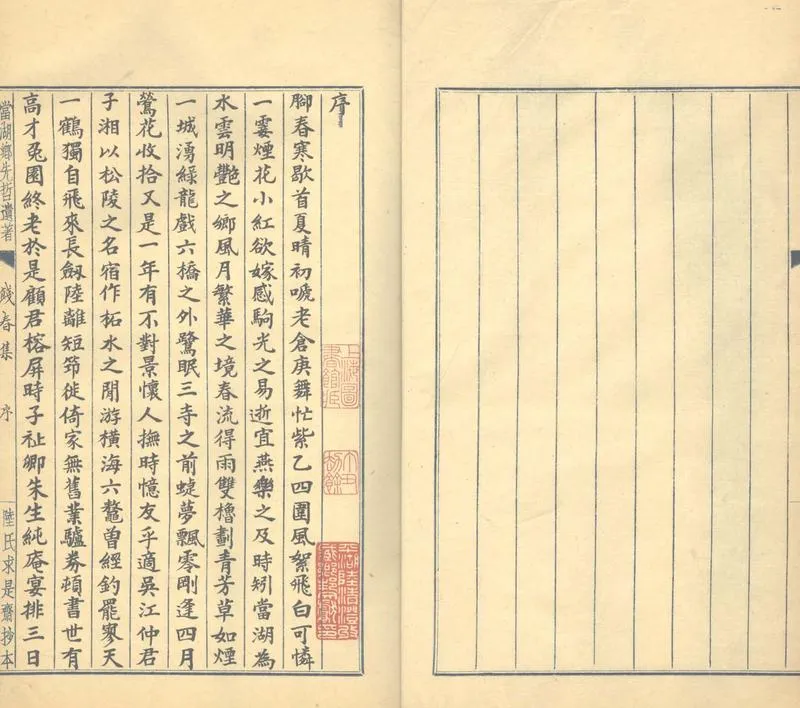 序
腳春寒歇首夏晴初嗁老倉庚舞忙紫乙四圍風絮飛白可憐
一霎煙花小紅欲嫁感駒光之易逝宜燕樂之及時矧當湖為
水雲明豔之鄉風月繁華之境春流得雨雙櫓劃青芳草如煙
一城湧綠龍戲六橋之外鷺眠三寺之前蜨夢飄零剛逢四月
鶯花收拾又是一年有不對景懷人撫時憶友乎適吳江仲君
子湘以松陵之名宿作柘水之閒游橫海六鼇曾經釣罷寥天
一鶴獨自飛來長劒陸離短笻徙倚家無舊業驢券頓書世有
高才兔園終老於是顧君榕屏時子祉卿朱生純庵宴排三日
當湖鄉先哲遺著
餞春集
序
陸氏求是齋抄本
上海圖書館藏